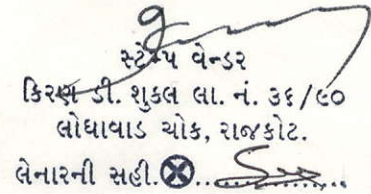 સ્ટેમ્પ વેન્ડર
કિરણ ડી. શુકલ લા. નં. ૩૬/૯૦
લોધાવાડ ચોક, રાજકોટ.
લેનારની સહી.